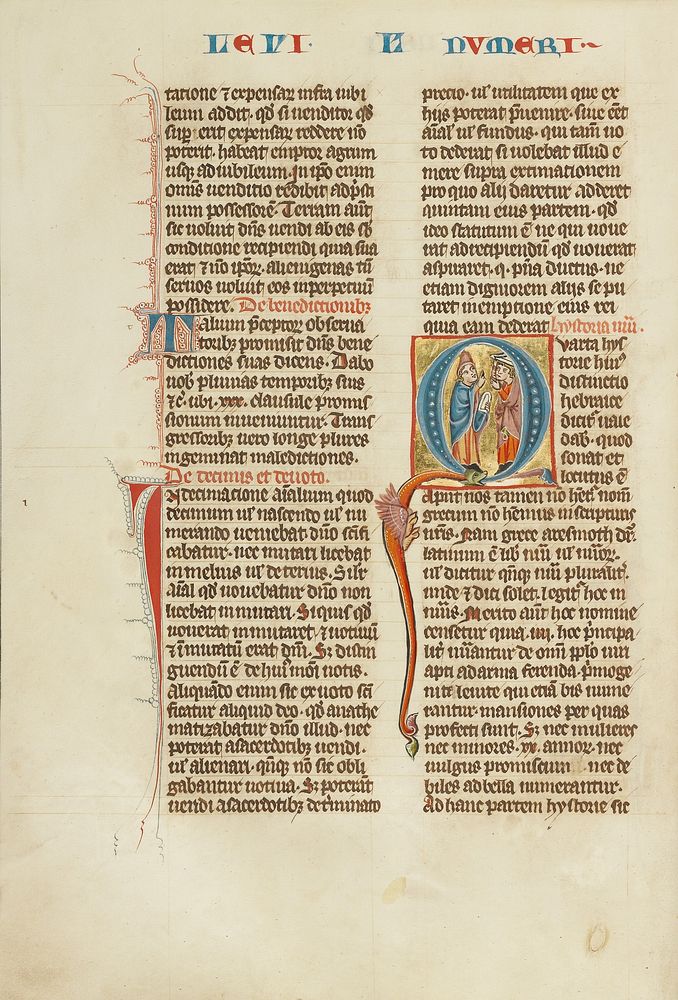 LEVI. N NVMERI.
tatione ⁊ expensaꝝ infra iubi
leum addit. qd̓ si uenditor qd̓
sup̱ erit expensaꝝ reddere nō
poterit. habeat emptor agrum
usq̱ ad iubileum. In ip̄o enim
omnis uenditio redibit ad p̄sti
num possessorē. Terram aūt
sic uoluit dn̄s uendi ab eis sb̓
conditione recipiendi quia sua
erat ⁊ nō ip̄oꝝ. alienigenas tn̄
seruos uoluit eos inperpetuū
possidere. De benedictionibꝫ
Talium p̄ceptoꝝ obserua
toribꝫ promisit dn̄s bene
dictiones suas dicens. Dabo
uob̓ pluuias temporibꝫ suis
⁊c̄. ubi .xxx. clausule promis
sionum inueniuntur. Trans
gressoribꝫ uero longe plures
ingeminat maledictiones.
De decimis et deuoto.
In decimatione aīalium quod
decimum ul̓ nascendo ul̓ nu
merando ueniebat dn̄o scīfi
cabatur. nec mutari licebat
in melius ul̓ deterius. Silr̓
aīal qd̓ uouebatur dn̄o non
licebat inmutari. Siquis qd̓
uouerat inmutaret ⁊ uotiuū
⁊ inmutatū erat dn̄i. Sꝫ distin
guendū ē de huī moī uotis.
Aliquādo enim sic ex uoto scī
ficatur aliquid deo. qd̓ anathe
matizabatur dn̄o illud. nec
poterat a sacerdotibꝫ uendi.
ul̓ alienari. qn̄q̱ nō sic obli
gabantur uotiua. Sꝫ poterāt
uendi a sacerdotibꝫ det̓minato
precio. ul̓ utilitatem que ex
hijs poterat p̄uenire. siue eēt
aīal ul̓ fundus. qui tam̄ uo
to dederat si uolebat illud e
mere supra extimationem
pro quo alij daretur adderet
quintam eius partem. qd̓
ideo statutum ē ne qui uoue
rat ad recipiendū qd̓ uouerat
aspiraret. q. p̄nia ductus. ne
etiam digniorem alijs se pu
taret in emptione eius rei
quia eam dederat hystoria nūī.
Quarta hys
torie hui᷒
distinctio
hebraice
dicit̓ uaie
dab̓. quod
sonat et
locutus ē
Alpīt nos tamen nō het̓ nom̄
grecum nō hēmus in scripturis
nr̄is. Nam grece aresmoth dr̄.
latinum ē lib̓ nūī ul̓ nūoꝝ.
ul̓ dicitur qn̄q̱ nūī pluralit̓.
unde ⁊ dici solet. legit̓ hoc in
nūīs. Merito aūt hoc nomine
censetur quia .iiii. hoc p̄ncipa
lit̓ nūantur de om̄i pp̄lo uiri
apti ad arma ferenda. p̄moge
niti leuite qui etiam bis nume
rantur. mansiones per quas
profecti sunt. Sꝫ nec mulieres
nec minores .xx. annoꝝ. nec
uulgus promiscuum nec de
biles ad bella numerantur.
Ad hanc partem hystorie sic